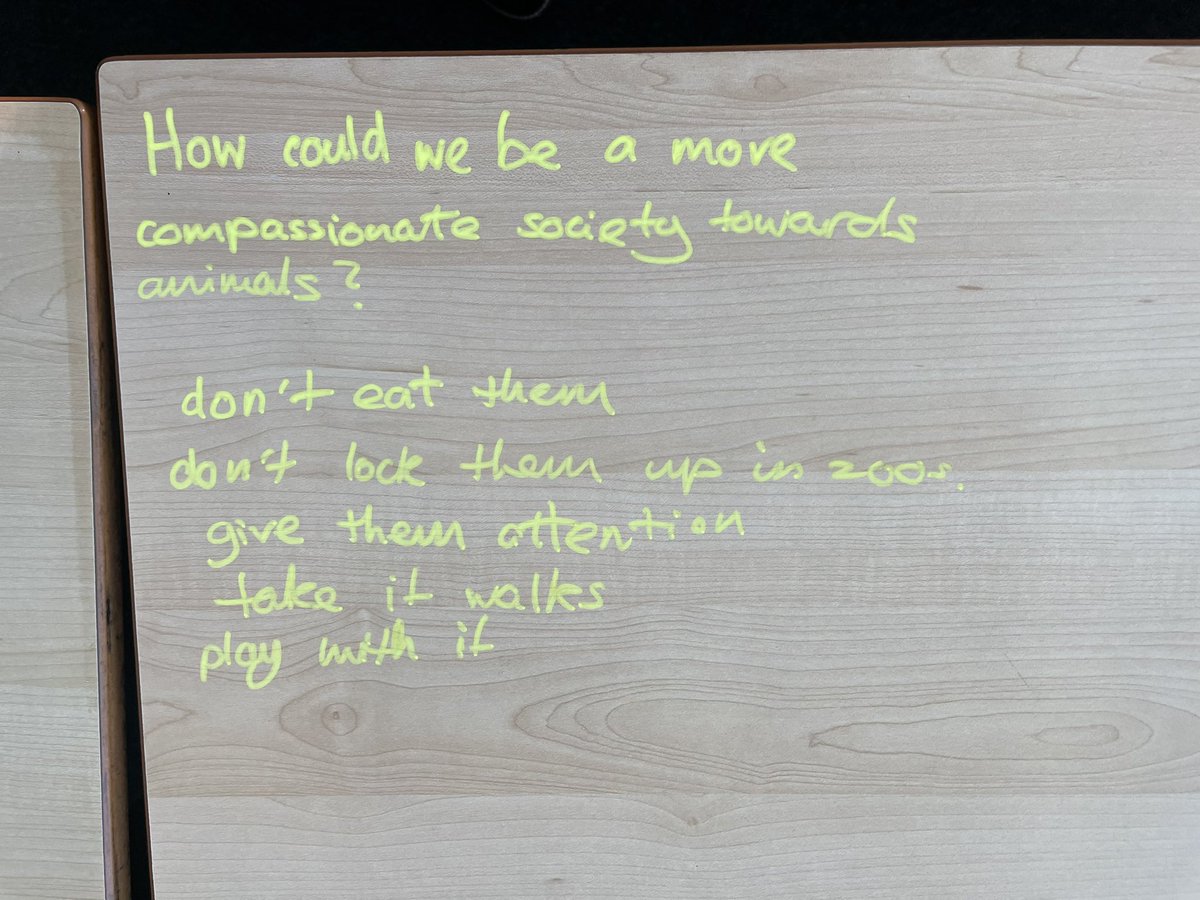 How could we be a move
compassionate society towards
animals?
don't eat them
don't lock them up in zoos.
give them attention
take it walks
play with it